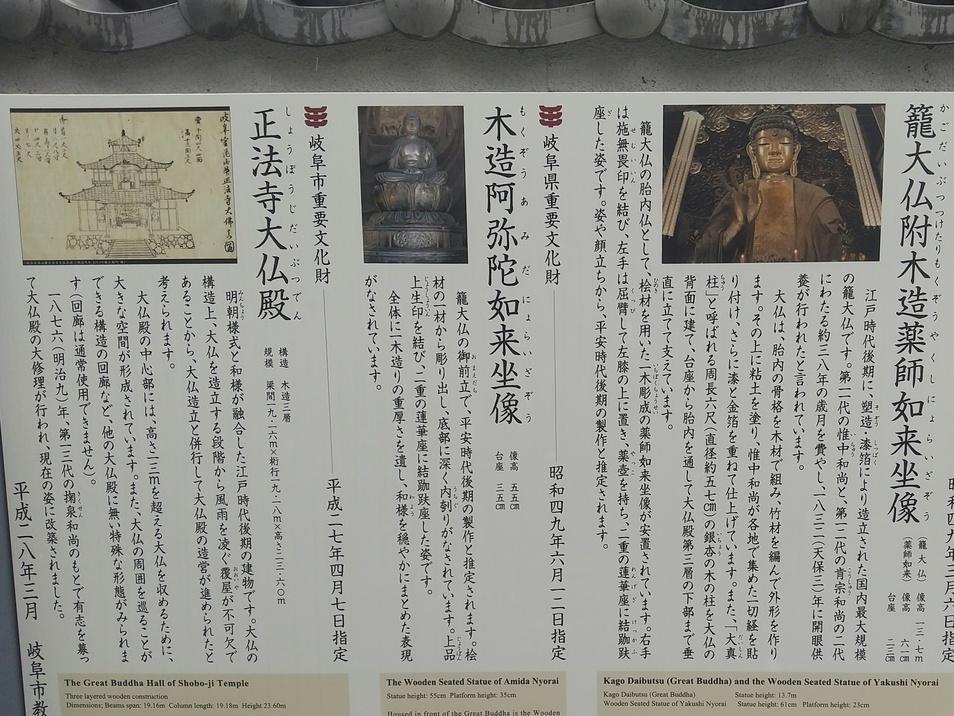 籠大仏附木造薬師如来坐像
かごだいぶつつけたりもくぞうやくしにょらいざぞう
籠大仏 像高 一三・七m
薬師如来 像高 六一cm
台座 二三cm
江戸時代後期に、塑造・漆箔により造立された国内最大規模
の籠大仏です。第一一代の惟中和尚と、第一二代の肯宗和尚の二代
にわたる約三八年の歳月を費やし、一八三二(天保三)年に開眼供
養が行われたと言われています。
大仏は、胎内の骨格を木材で組み、竹材を編んで外形を作り
ます。その上に粘土を塗り、惟中和尚が各地で集めた一切経を貼
り付け、さらに漆と金箔を重ねて仕上げています。また、「大真
柱」と呼ばれる周長六尺(直径約五七cm)の銀杏の木の柱を大仏の
背面に建て、台座から胎内を通して大仏殿第三層の下部まで垂
直に立てて支えています。
籠大仏の胎内仏として、桧材を用いた一木彫成の薬師如来坐像が安置されています。右手
は施無畏印を結び、左手は屈臂して左膝の上に置き、薬壺を持ち、二重の蓮華座に結跏趺
座した姿です。姿や顔立ちから、平安時代後期の製作と推定されます。
岐阜県重要文化財
昭和四九年六月一二日指定
木造阿弥陀如来坐像
もくぞうあみだにょらいざぞう
像高 五五cm
台座 三五cm
籠大仏の御前立で、平安時代後期の製作と推定されます。桧
材の一材から彫り出し、底部に深く内刳りがなされています。上品
上生印を結び、二重の蓮華座に結跏趺座した姿です。
全体に一木造りの重厚さを遺し、和様を穏やかにまとめた表現
がなされています。
岐阜市重要文化財
平成二七年四月七日指定
正法寺大仏殿
しょうぼうじだいぶつでん
構造 木造三層
規模 梁間一九・一六m×桁行一九・一八m×高さ二三・六〇m
明朝様式と和様が融合した江戸時代後期の建物です。大仏の
構造上、大仏を造立する段階から風雨を凌ぐ覆屋が不可欠で
あることから、大仏造立と併行して大仏殿の造営が進められたと
考えられます。
大仏殿の中心部には、高さ一三mを超える大仏を収めるために、
大きな空間が形成されています。また、大仏の周囲を巡ることが
できる構造の回廊など、他の大仏殿に無い特殊な形態がみられま
す(回廊は通常使用できません)。
一八七六(明治九)年、第一三代の掬泉和尚のもとで有志を募っ
て大仏殿の大修理が行われ、現在の姿に改築されました。
平成二八年三月 岐阜市教
The Great Buddha Hall of Shobo-ji Temple
Three layered wooden construction
Dimensions; Beams span: 19.16m Column length: 19.18m Height 23.60m
The Wooden Seated Statue of Amida Nyorai
Statue height: 55cm Platform height: 35cm
Housed in front of the Great Buddha is the Wooden
Kago Daibutsu (Great Buddha) and the Wooden Seated Statue of Yakushi Nyorai
Kago Daibutsu (Great Buddha) Statue height: 13.7m
Wooden Seated Statue of Yakushi Nyorai Statue height: 61cm Platform height: 23cm